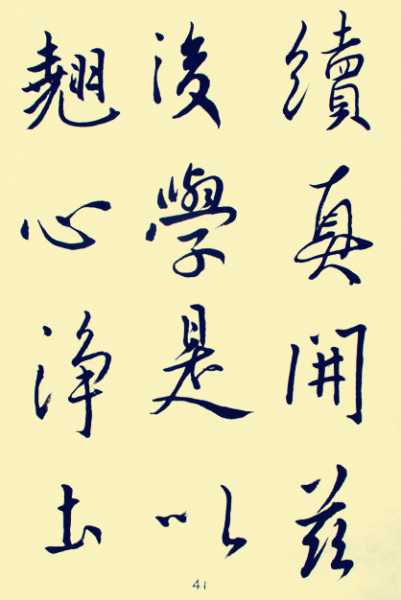 續真開茲
後學是以
翹心淨土
41